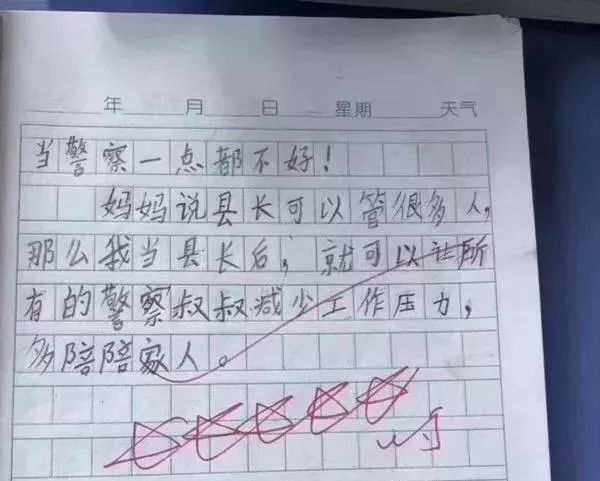 年 月 日 星期 天气
当警察一点都不好!
妈妈说县长可以管很多人,
那么我当县长后,就可以让所
有的警察叔叔减少工作压力,
多陪陪家人。